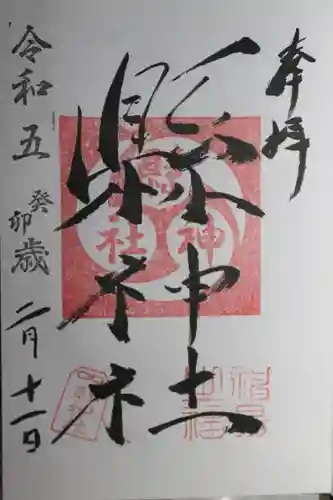 奉拝
縣神社
縣
神
社
令和五癸卯歳二月十一日